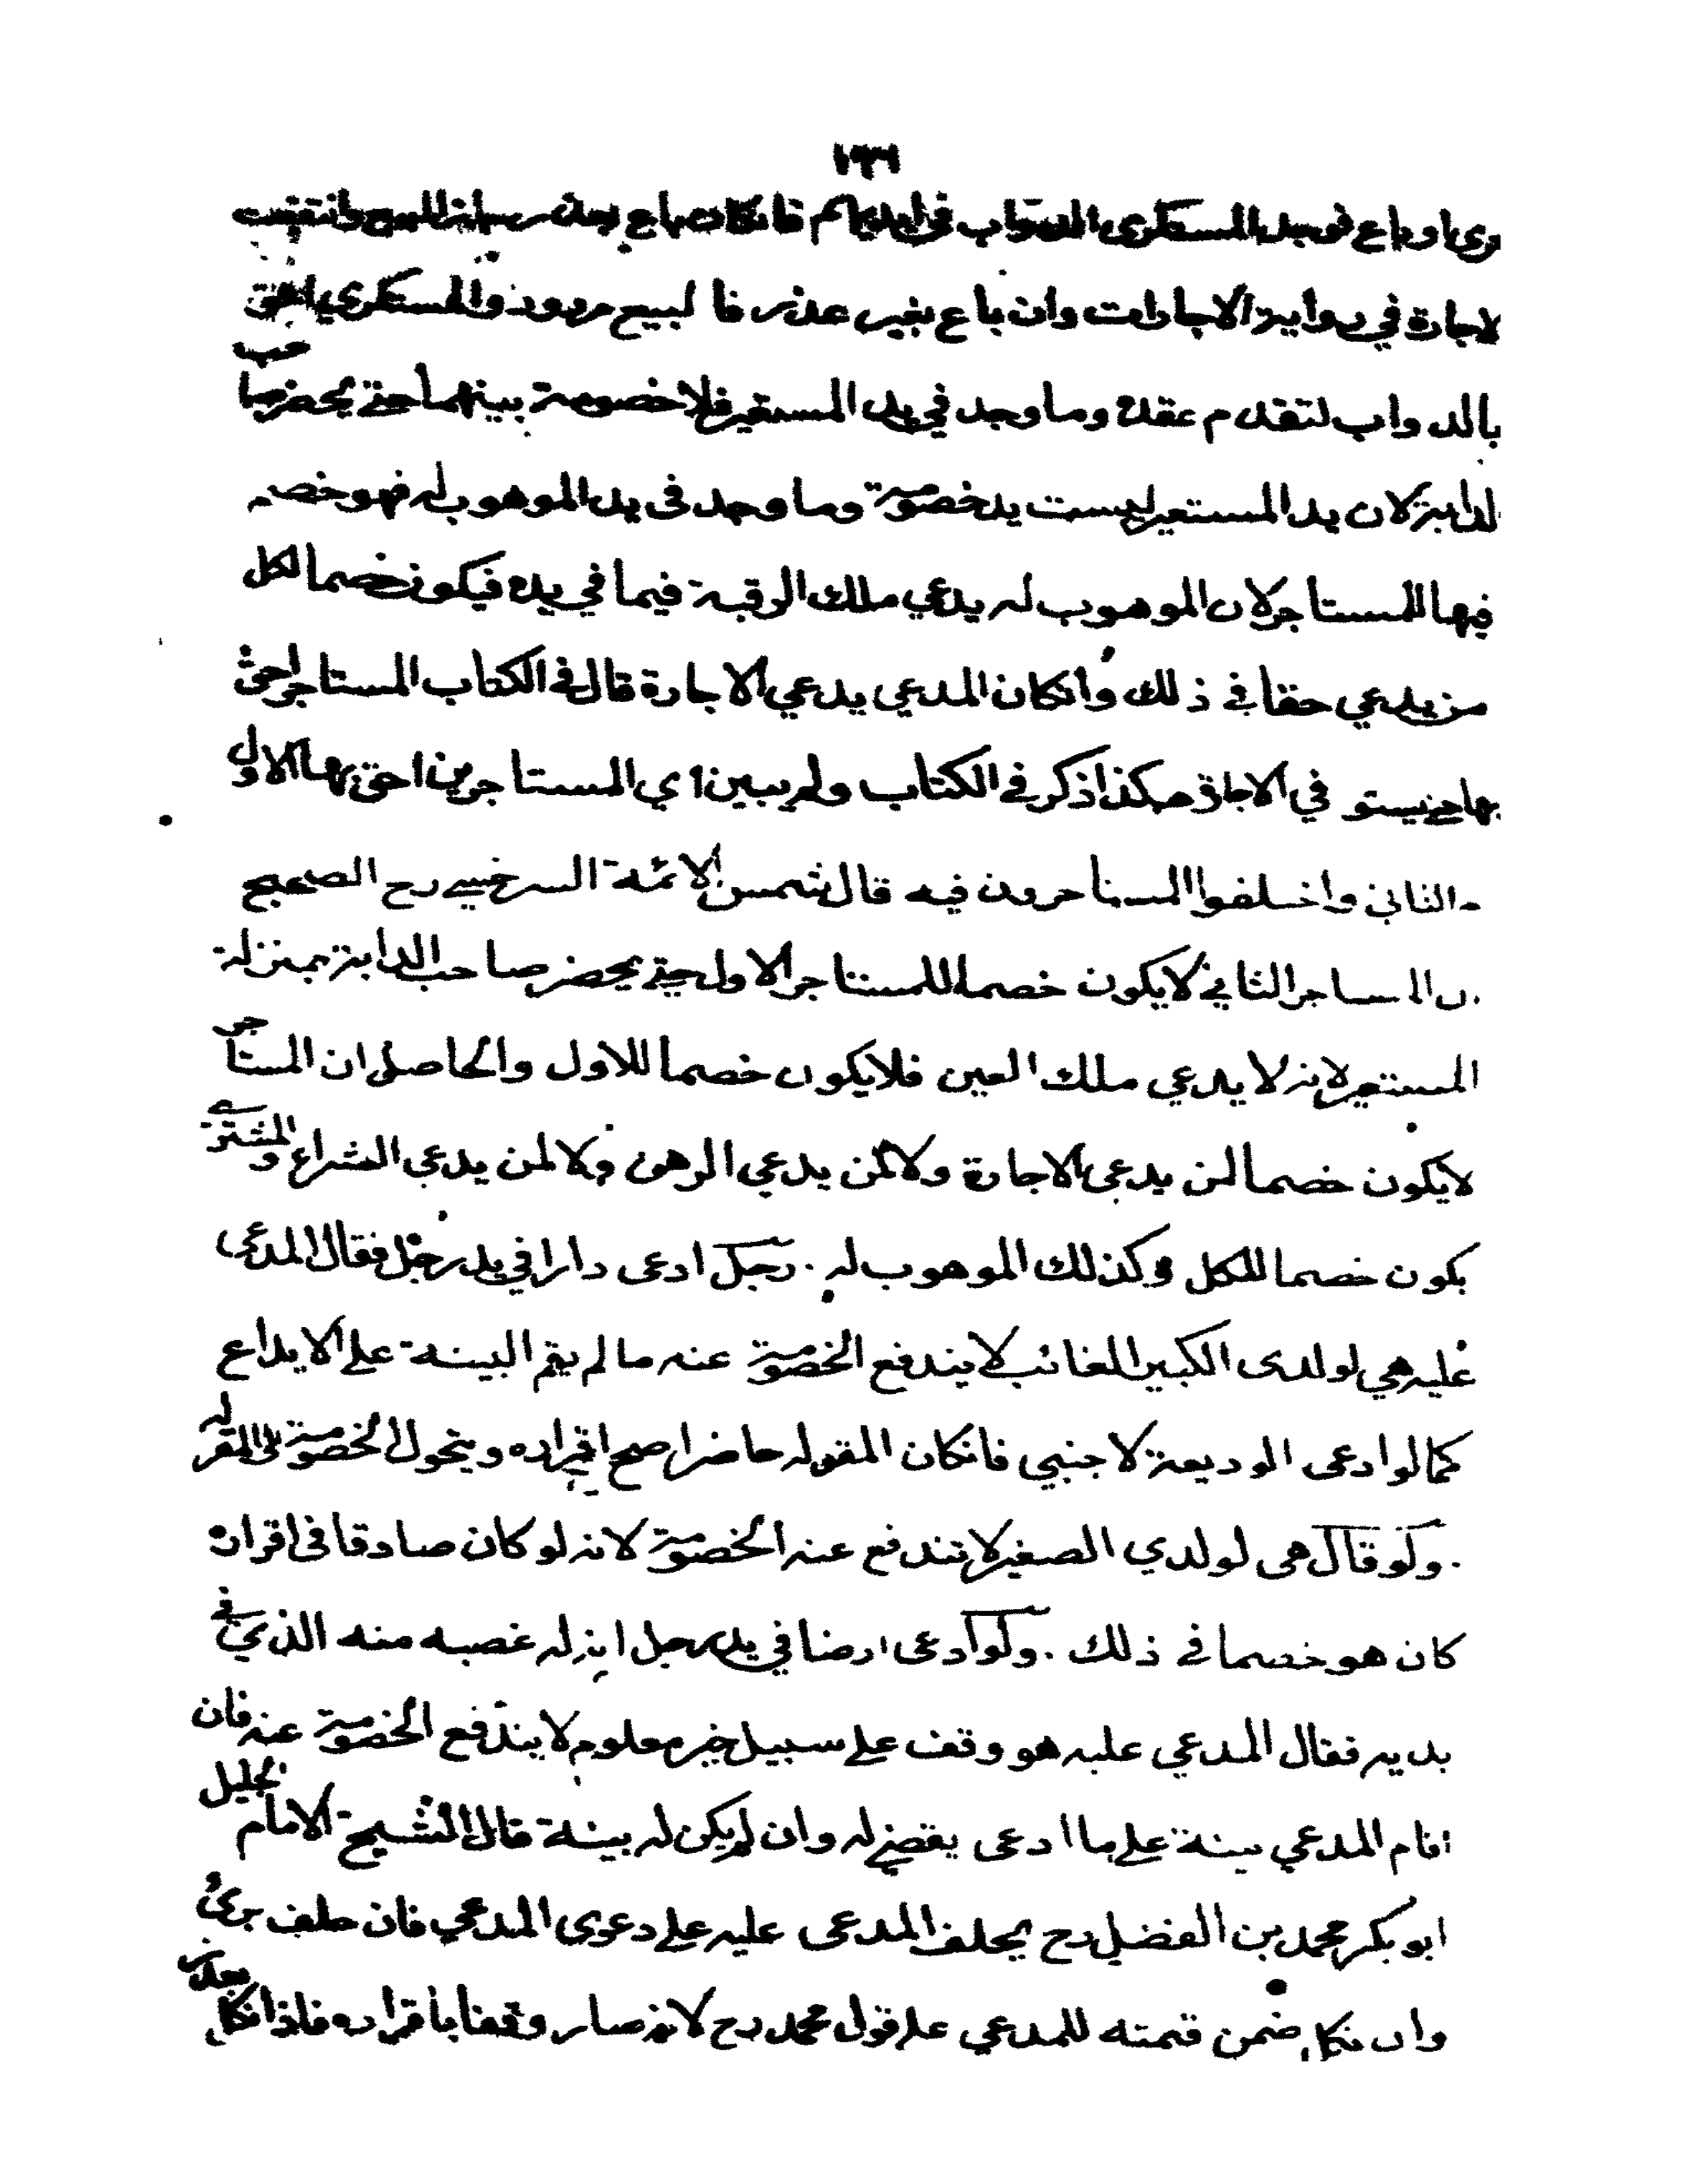 ١٣٦
وباع فوجد المستكري الدواب في ايديهم فان كان باع بعذر للبيع وانتقضت
الاجارة في رواية الاجارات وان باع بغير عذر فا لبيع مردود والمستكري احق
بالدواب لتقدم عقده وما وجد في يد المستعير فلا خصومة بينهما حتى يحضر صاحب
الدابة لان يد المستعير ليست يد خصومة وما وجد في يد الموهوب له فهو خصم
فيها للمستاجر لان الموهوب له يدعي ملك الرقبة فيما في يده فيكون خصما لكل
من يدعي حقا في ذلك وانكان المدعي يدعي الاجارة قال في الكتاب المستاجر احق
بها حتى يستوفي الاجارة هكذا ذكر في الكتاب ولم يبين اي المستاجرين احق بها الاول
م الثاني واختلفوا المتاخرون فيه قال شمس الائمة السرخسي رح الصحيح
ان المستاجر الثاني لا يكون خصما للمستاجر الاول حتى يحضر صاحب الدابة بمنزلة
المستعير لانه لا يدعي ملك العين فلا يكون خصما للاول والحاصل ان المستاجر
لا يكون خصما لمن يدعي الاجارة ولا لمن يدعي الرهن ولا لمن يدعي الشراء والمشتري
يكون خصما للكل وكذلك الموهوب له . رجل ادعى دارا في يد رجل فقال المدعى
عليه هي لولدى الكبير الغائب لا يندفع الخصومة عنه ما لم يقم البينة على الايداع
كما لو ادعى الوديعة لاجنبي فانكان المقر له حاضرا صح اقراره ويتحول الخصومة الى المقر له
. ولو قال هي لولدي الصغير لا تندفع عنه الخصومة لانه لو كان صادقا في اقراره
كان هو خصما في ذلك . ولو ادعى ارضا في يد رجل انه له غصبه منه الذي في
يديه فقال المدعي عليه هو وقف على سبيل خير معلوم لا يندفع الخصومة عنه فان
اقام المدعي بينة على ما ادعى يقضي له وان لم يكن له بينة قال الشيخ الامام الجليل
ابو بكر محمد بن الفضل رح يحلف المدعى عليه على دعوى المدعي فان حلف برئ
وان نكل ضمن قيمته للمدعي على قول محمد رح لانه صار وقفا باقراره فاذا نكل بعد